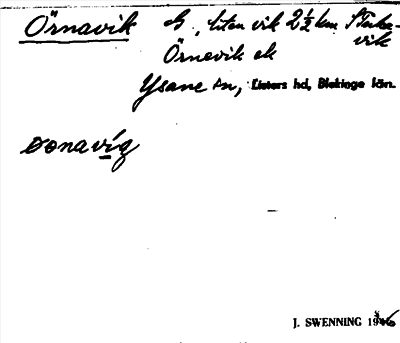 Örnavik , liten vik 2½ km S Torka-
vik
Örnevik ek
Ysane sn, Listers hd, Blekinge län.
J. SWENNING 1946